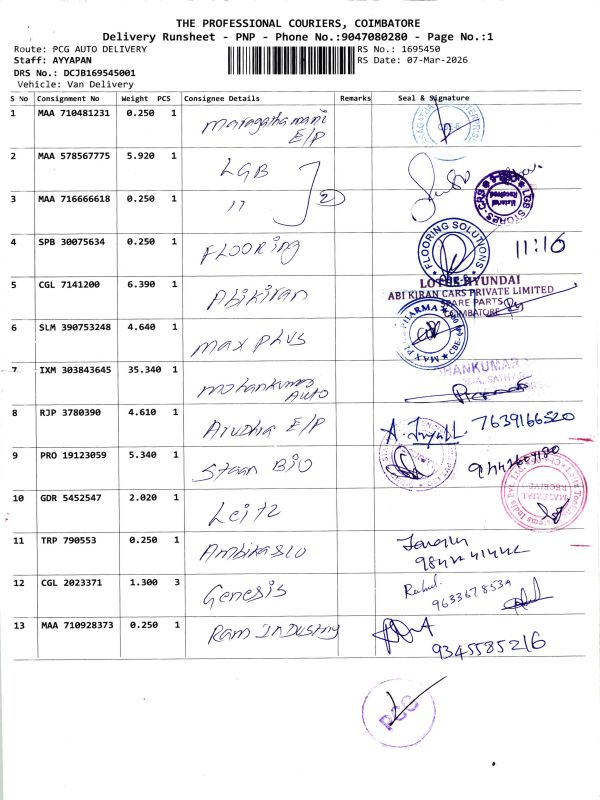 THE PROFESSIONAL COURIERS, COIMBATORE
Delivery Runsheet - PNP - Phone No.:9047080280 - Page No.:1
Route: PCG AUTO DELIVERY
Staff: AYYAPAN
DRS No.: DCJB169545001
Vehicle: Van Delivery
RS No.: 1695450
RS Date: 07-Mar-2026
S No Consignment No Weight PCS Consignee Details Remarks Seal & Signature
1 MAA 710481231 0.250 1 Maragathamani E/P
2 MAA 578567775 5.920 1 LGB
3 MAA 716666618 0.250 1 11 2
LGB STORES-CRS Material Received
4 SPB 30075634 0.250 1 FLOORING FLOORING SOLUTIONS 11:16
5 CGL 7141200 6.390 1 Abikiran
LOTUS HYUNDAI
ABI KIRAN CARS PRIVATE LIMITED
SPARE PARTS
COIMBATORE
6 SLM 390753248 4.640 1 Max Plus MAX PLUS PHARMA
7 IXM 303843645 35.340 1 Mohankumar Auto
8 RJP 3780390 4.610 1 Arudha E/P 7639166520
9 PRO 19123059 5.340 1 Staan BIO
10 GDR 5452547 2.020 1 Leitz MATERIAL RECEIVED
11 TRP 790553 0.250 1 Ambika
12 CGL 2023371 1.300 3 Genesis Rahul. 9633678534
13 MAA 710928373 0.250 1 Ram Industry 9345585216
PCG